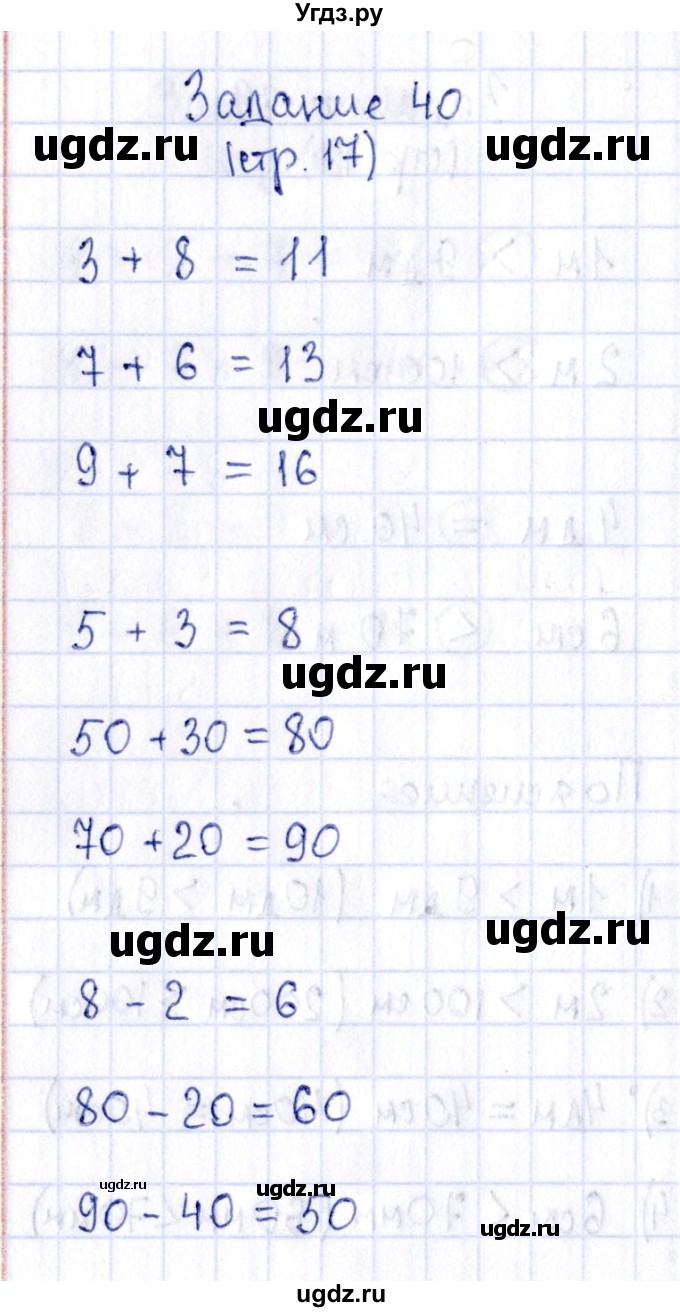 Угдз.ру
Задание 40
ugdz.ru
ugdz.ru
(стр. 17)
3 + 8 = 11
7 + 6 = 13
ugdz.ru
9 + 7 = 16
5 + 3 = 8
ugdz.ru
50 + 30 = 80
70 + 20 = 90
ugdz.ru
ugdz.ru
8 - 2 = 6
80 - 20 = 60
ugdz.ru
ugdz.ru
90 - 40 = 50
ugdz.ru
ugdz.ru